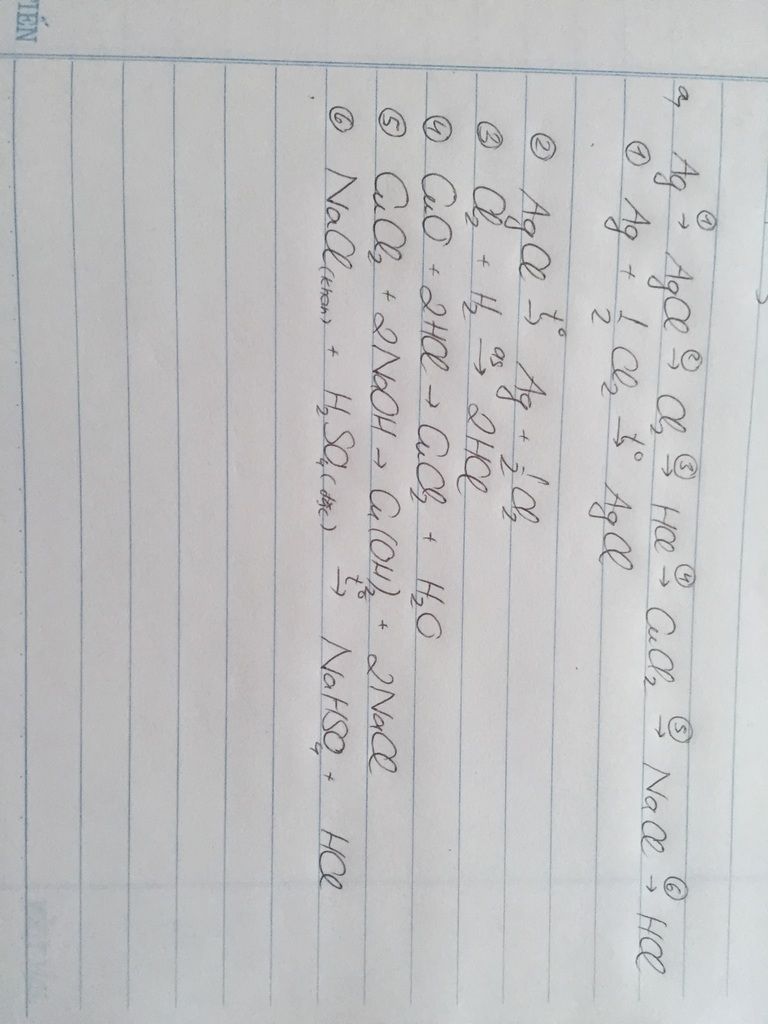 TIẾN
a, Ag →① AgCl →② Cl₂ →③ HCl →④ CuCl₂ →⑤ NaCl →⑥ HCl
① Ag + 1/2 Cl₂ →t° AgCl
② AgCl →t° Ag + 1/2 Cl₂
③ Cl₂ + H₂ →as 2HCl
④ CuO + 2HCl → CuCl₂ + H₂O
⑤ CuCl₂ + 2NaOH → Cu(OH)₂ + 2NaCl
⑥ NaCl(khan) + H₂SO₄(đặc) →t° NaHSO₄ + HCl